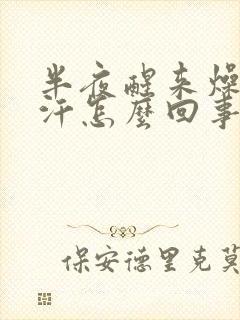 半夜醒来燥
汗怎麼回事
保安德里克莫